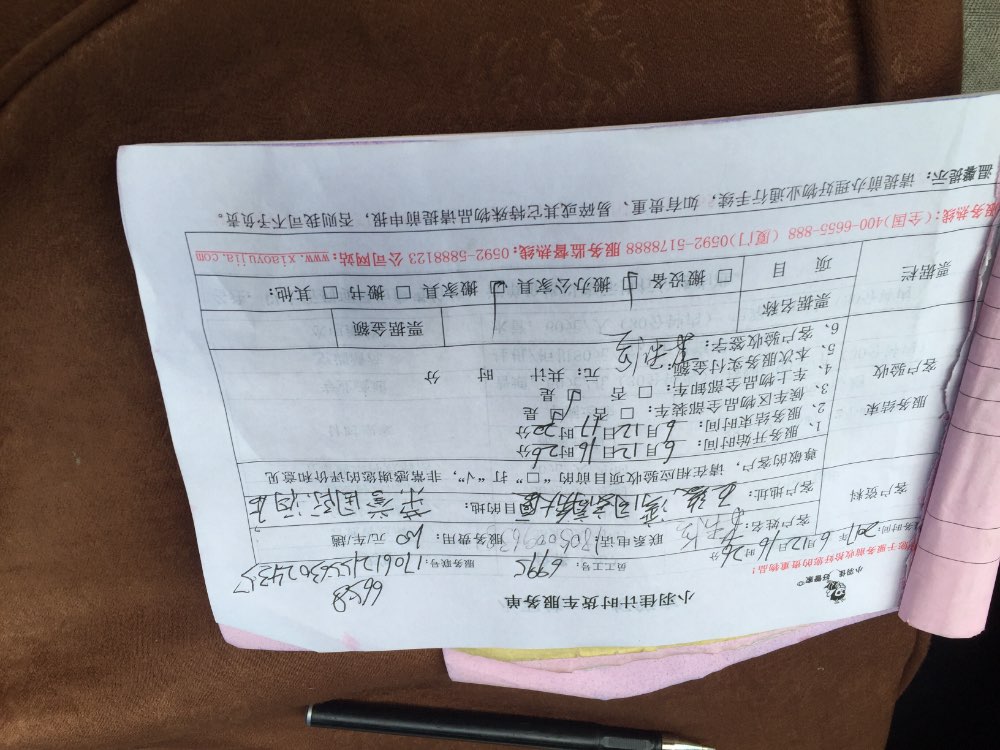 小羽佳计时货车服务单
小羽佳 好管家
6658
员工工号: 6995 服务联号:
务时间: 2017年6月12日16时26分
客户资料 客户姓名: 联系电话: 服务费用: 元/车/趟
客户地址: 目的地:
尊敬的客户，请在相应验收项目前的“□”打“√”，非常感谢您的评价和意见
服务结束 客户验收
1、服务开始时间: 6月12日16时26分
2、服务结束时间: 6月12日17时20分
3、候车区物品全部装车: □否 □是
4、车上物品全部卸车: □否 □是
5、本次服务实付金额: 元; 共计 时 分
6、客户验收签字:
票据栏 票据名称 票据金额
项目 □搬设备 □搬办公家具 □搬家具 □搬书 □其他:
服务热线:(全国)400-6655-888 (厦门)0592-5178888 服务监督热线:0592-5898123 公司网站:www.xiaoyujia.com
温馨提示: 请提前办理好物业通行手续，如有贵重、易碎或其它特殊物品请提前申报，否则我司不予负责。